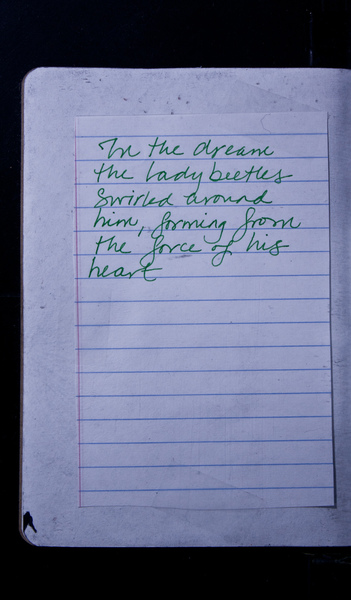 In the dream
the lady beetles
swirled around
him, forming from
the force of his
heart